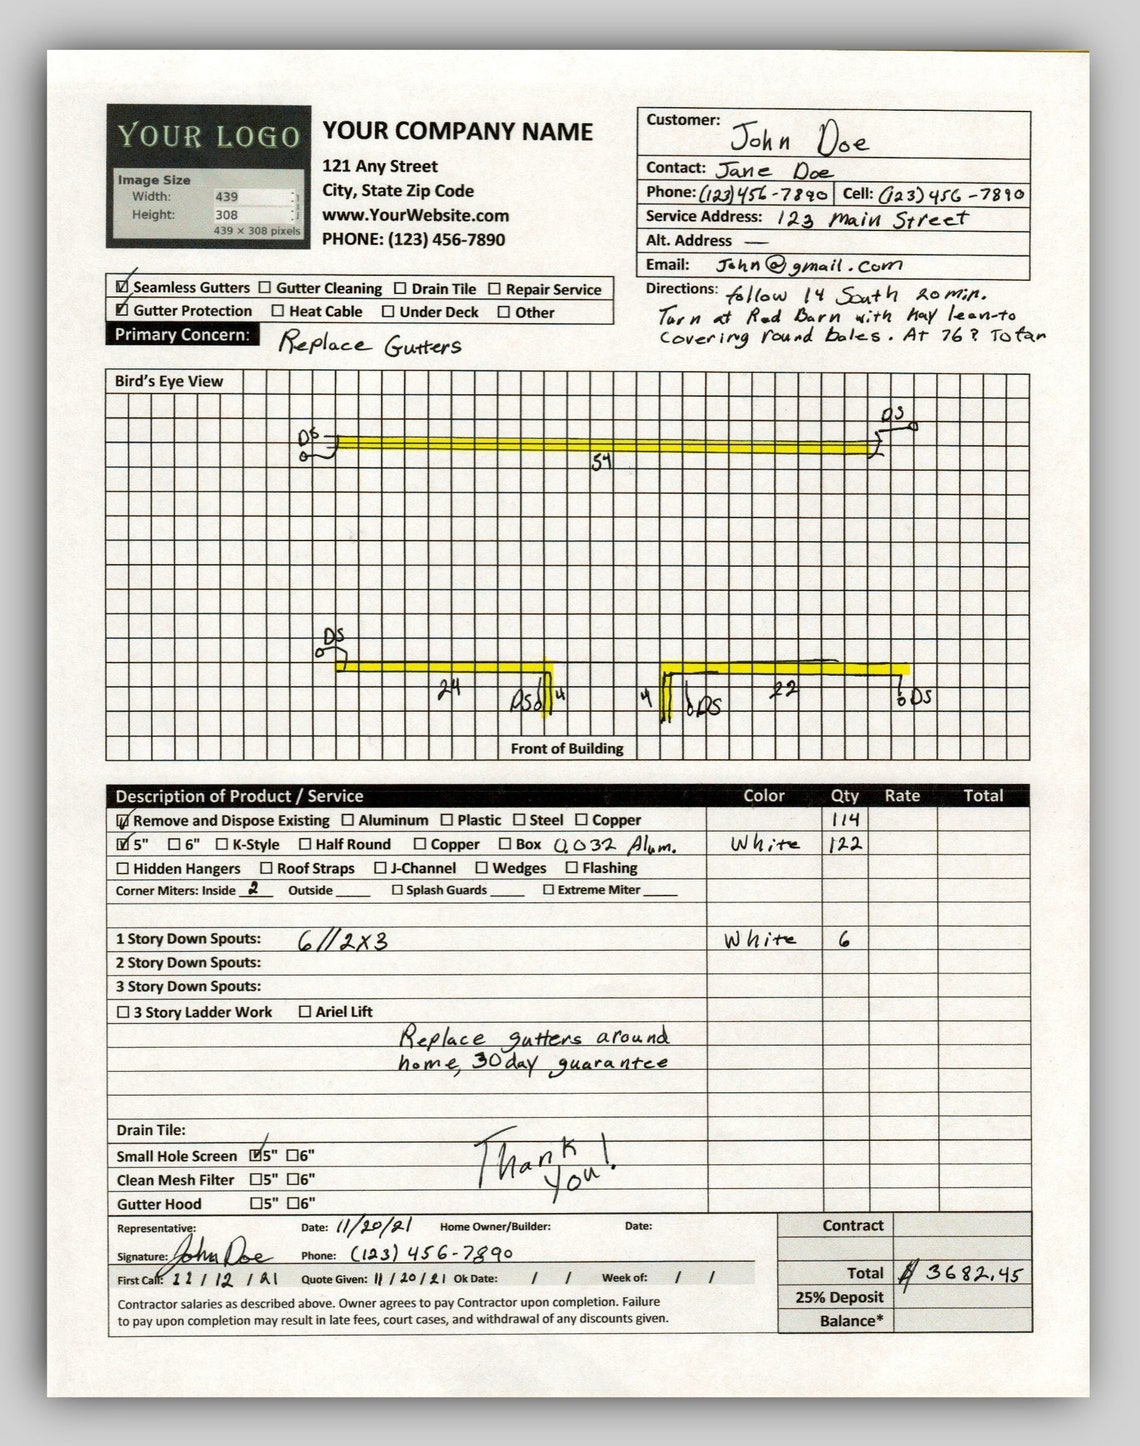 YOUR LOGO
Image Size
Width: 439
Height: 308
439 × 308 pixels
YOUR COMPANY NAME
121 Any Street
City, State Zip Code
www.YourWebsite.com
PHONE: (123) 456-7890
Customer: John Doe
Contact: Jane Doe
Phone: (123) 456-7890 Cell: (123) 456-7890
Service Address: 123 Main Street
Alt. Address —
Email: John@gmail.com
Directions: follow 14 South 20 min.
Turn at Red Barn with hay lean-to
Covering round bales. At 76
☑ Seamless Gutters ☐ Gutter Cleaning ☐ Drain Tile ☐ Repair Service
☑ Gutter Protection ☐ Heat Cable ☐ Under Deck ☐ Other
Primary Concern: Replace Gutters
Bird's Eye View
DS DS
54
DS
24 DS 4 4 DS 22 DS
Front of Building
Description of Product / Service Color Qty Rate Total
☑ Remove and Dispose Existing ☐ Aluminum ☐ Plastic ☐ Steel ☐ Copper 114
☑ 5" ☐ 6" ☐ K-Style ☐ Half Round ☐ Copper ☐ Box 0.032 Alum. White 122
☐ Hidden Hangers ☐ Roof Straps ☐ J-Channel ☐ Wedges ☐ Flashing
Corner Miters: Inside 2 Outside ____ ☐ Splash Guards ____ ☐ Extreme Miter ____
1 Story Down Spouts: 6//2x3 White 6
2 Story Down Spouts:
3 Story Down Spouts:
☐ 3 Story Ladder Work ☐ Ariel Lift
Replace gutters around
home, 30 day guarantee
Drain Tile:
Small Hole Screen ☑ 5" ☐ 6"
Clean Mesh Filter ☐ 5" ☐ 6"
Gutter Hood ☐ 5" ☐ 6"
Thank
You!
Representative: Date: 11/20/21 Home Owner/Builder: Date:
Signature: John Doe Phone: (123) 456-7890
First Call: 11/12/21 Quote Given: 11/20/21 Ok Date: / / Week of: / /
Contractor salaries as described above. Owner agrees to pay Contractor upon completion. Failure
to pay upon completion may result in late fees, court cases, and withdrawal of any discounts given.
Contract
Total $ 3682.45
25% Deposit
Balance*